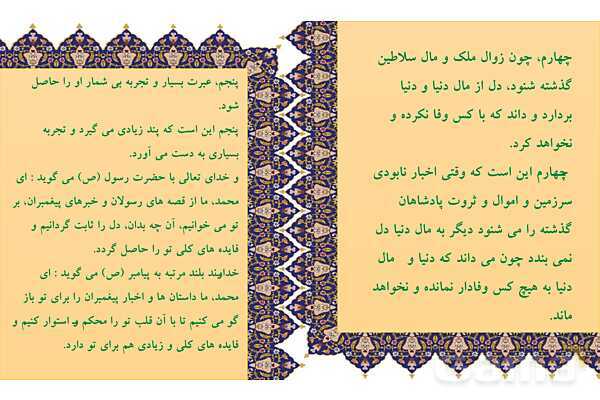 چهارم، چون زوال ملک و مال سلاطین
گذشته شنود، دل از مال دنیا و دنیا
بردارد و داند که با کس وفا نکرده و
نخواهد کرد.
چهارم این است که وقتی اخبار نابودی
سرزمین و اموال و ثروت پادشاهان
گذشته را می شنود دیگر به مال دنیا دل
نمی بندد چون می داند که دنیا و مال
دنیا به هیچ کس وفادار نمانده و نخواهد
ماند.
پنجم، عبرت بسیار و تجربه بی شمار او را حاصل
شود.
پنجم این است که پند زیادی می گیرد و تجربه
بسیاری به دست می آورد.
و خدای تعالی با حضرت رسول (ص) می گوید : ای
محمد، ما از قصه های رسولان و خبرهای پیغمبران، بر
تو می خوانیم، آن چه بدان، دل را ثابت گردانیم و
فایده های کلی تو را حاصل گردد.
خداوند بلند مرتبه به پیامبر (ص) می گوید : ای
محمد، ما داستان ها و اخبار پیغمبران را برای تو باز
گو می کنیم تا با آن قلب تو را محکم و استوار کنیم و
فایده های کلی و زیادی هم برای تو دارد.